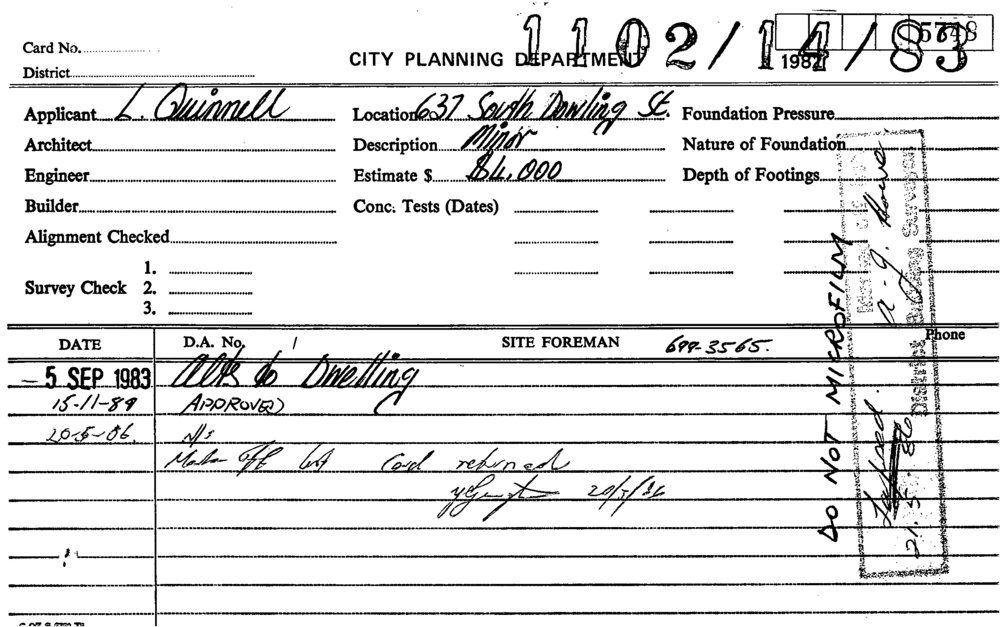 1102/14/83
5748
1982
Card No.
CITY PLANNING DEPARTMENT
District
Applicant L. Quinnell
Location 637 South Dowling St.
Foundation Pressure
Architect
Description Minor
Nature of Foundation
Engineer
Estimate $ $4,000
Depth of Footings
Builder
Conc. Tests (Dates)
Alignment Checked
1.
Survey Check 2.
3.
DATE
D.A. No. /
SITE FOREMAN 699-3565.
Phone
- 5 SEP 1983 Alts to Dwelling
APPROVED
N/S
off Card returned
DO NOT MICROFILM
21.5.86